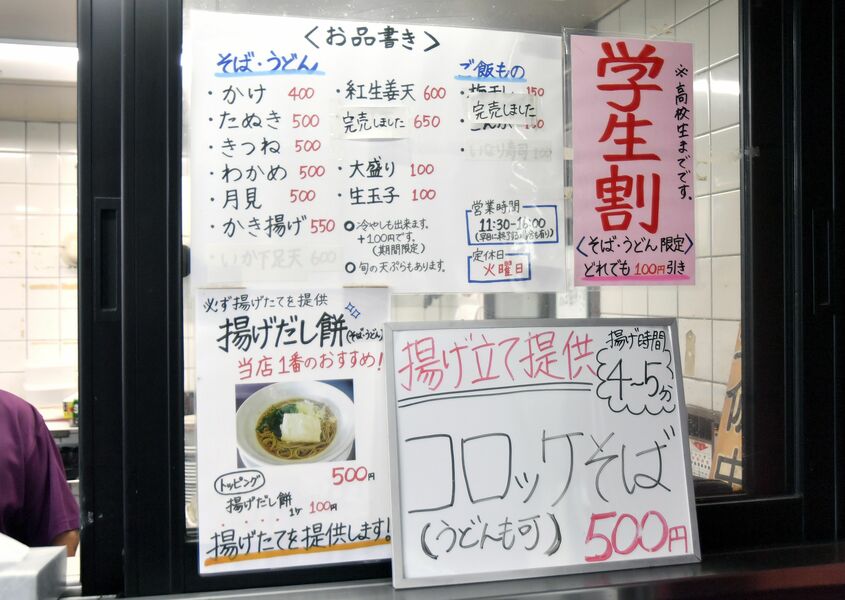 〈お品書き〉
そば・うどん
・かけ 400
・たぬき 500
・きつね 500
・わかめ 500
・月見 500
・かき揚げ 550
・いか下足天 600
・紅生姜天 600
完売しました 650
・大盛り 100
・生玉子 100
冷やしも出来ます。
+100円です。
(期間限定)
旬の天ぷらもあります。
ご飯もの
150
完売しました
・いなり寿司 100
営業時間
11:30-16:00
定休日
火曜日
学生割
※高校生までです。
〈そば・うどん限定〉
どれでも100円引き
必ず揚げたてを提供
揚げだし餅(そば・うどん)
当店1番のおすすめ!
500円
トッピング
揚げだし餅 1ヶ 100円
揚げたてを提供します!
揚げ立て提供
揚げ時間
4~5分
コロッケそば
(うどんも可)
500円